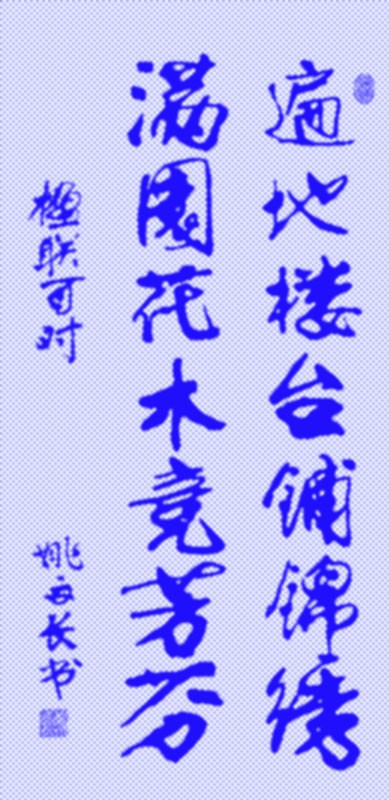 遍地楼台铺锦绣
满园花木竞芳芬
楹联可对
姚云长书